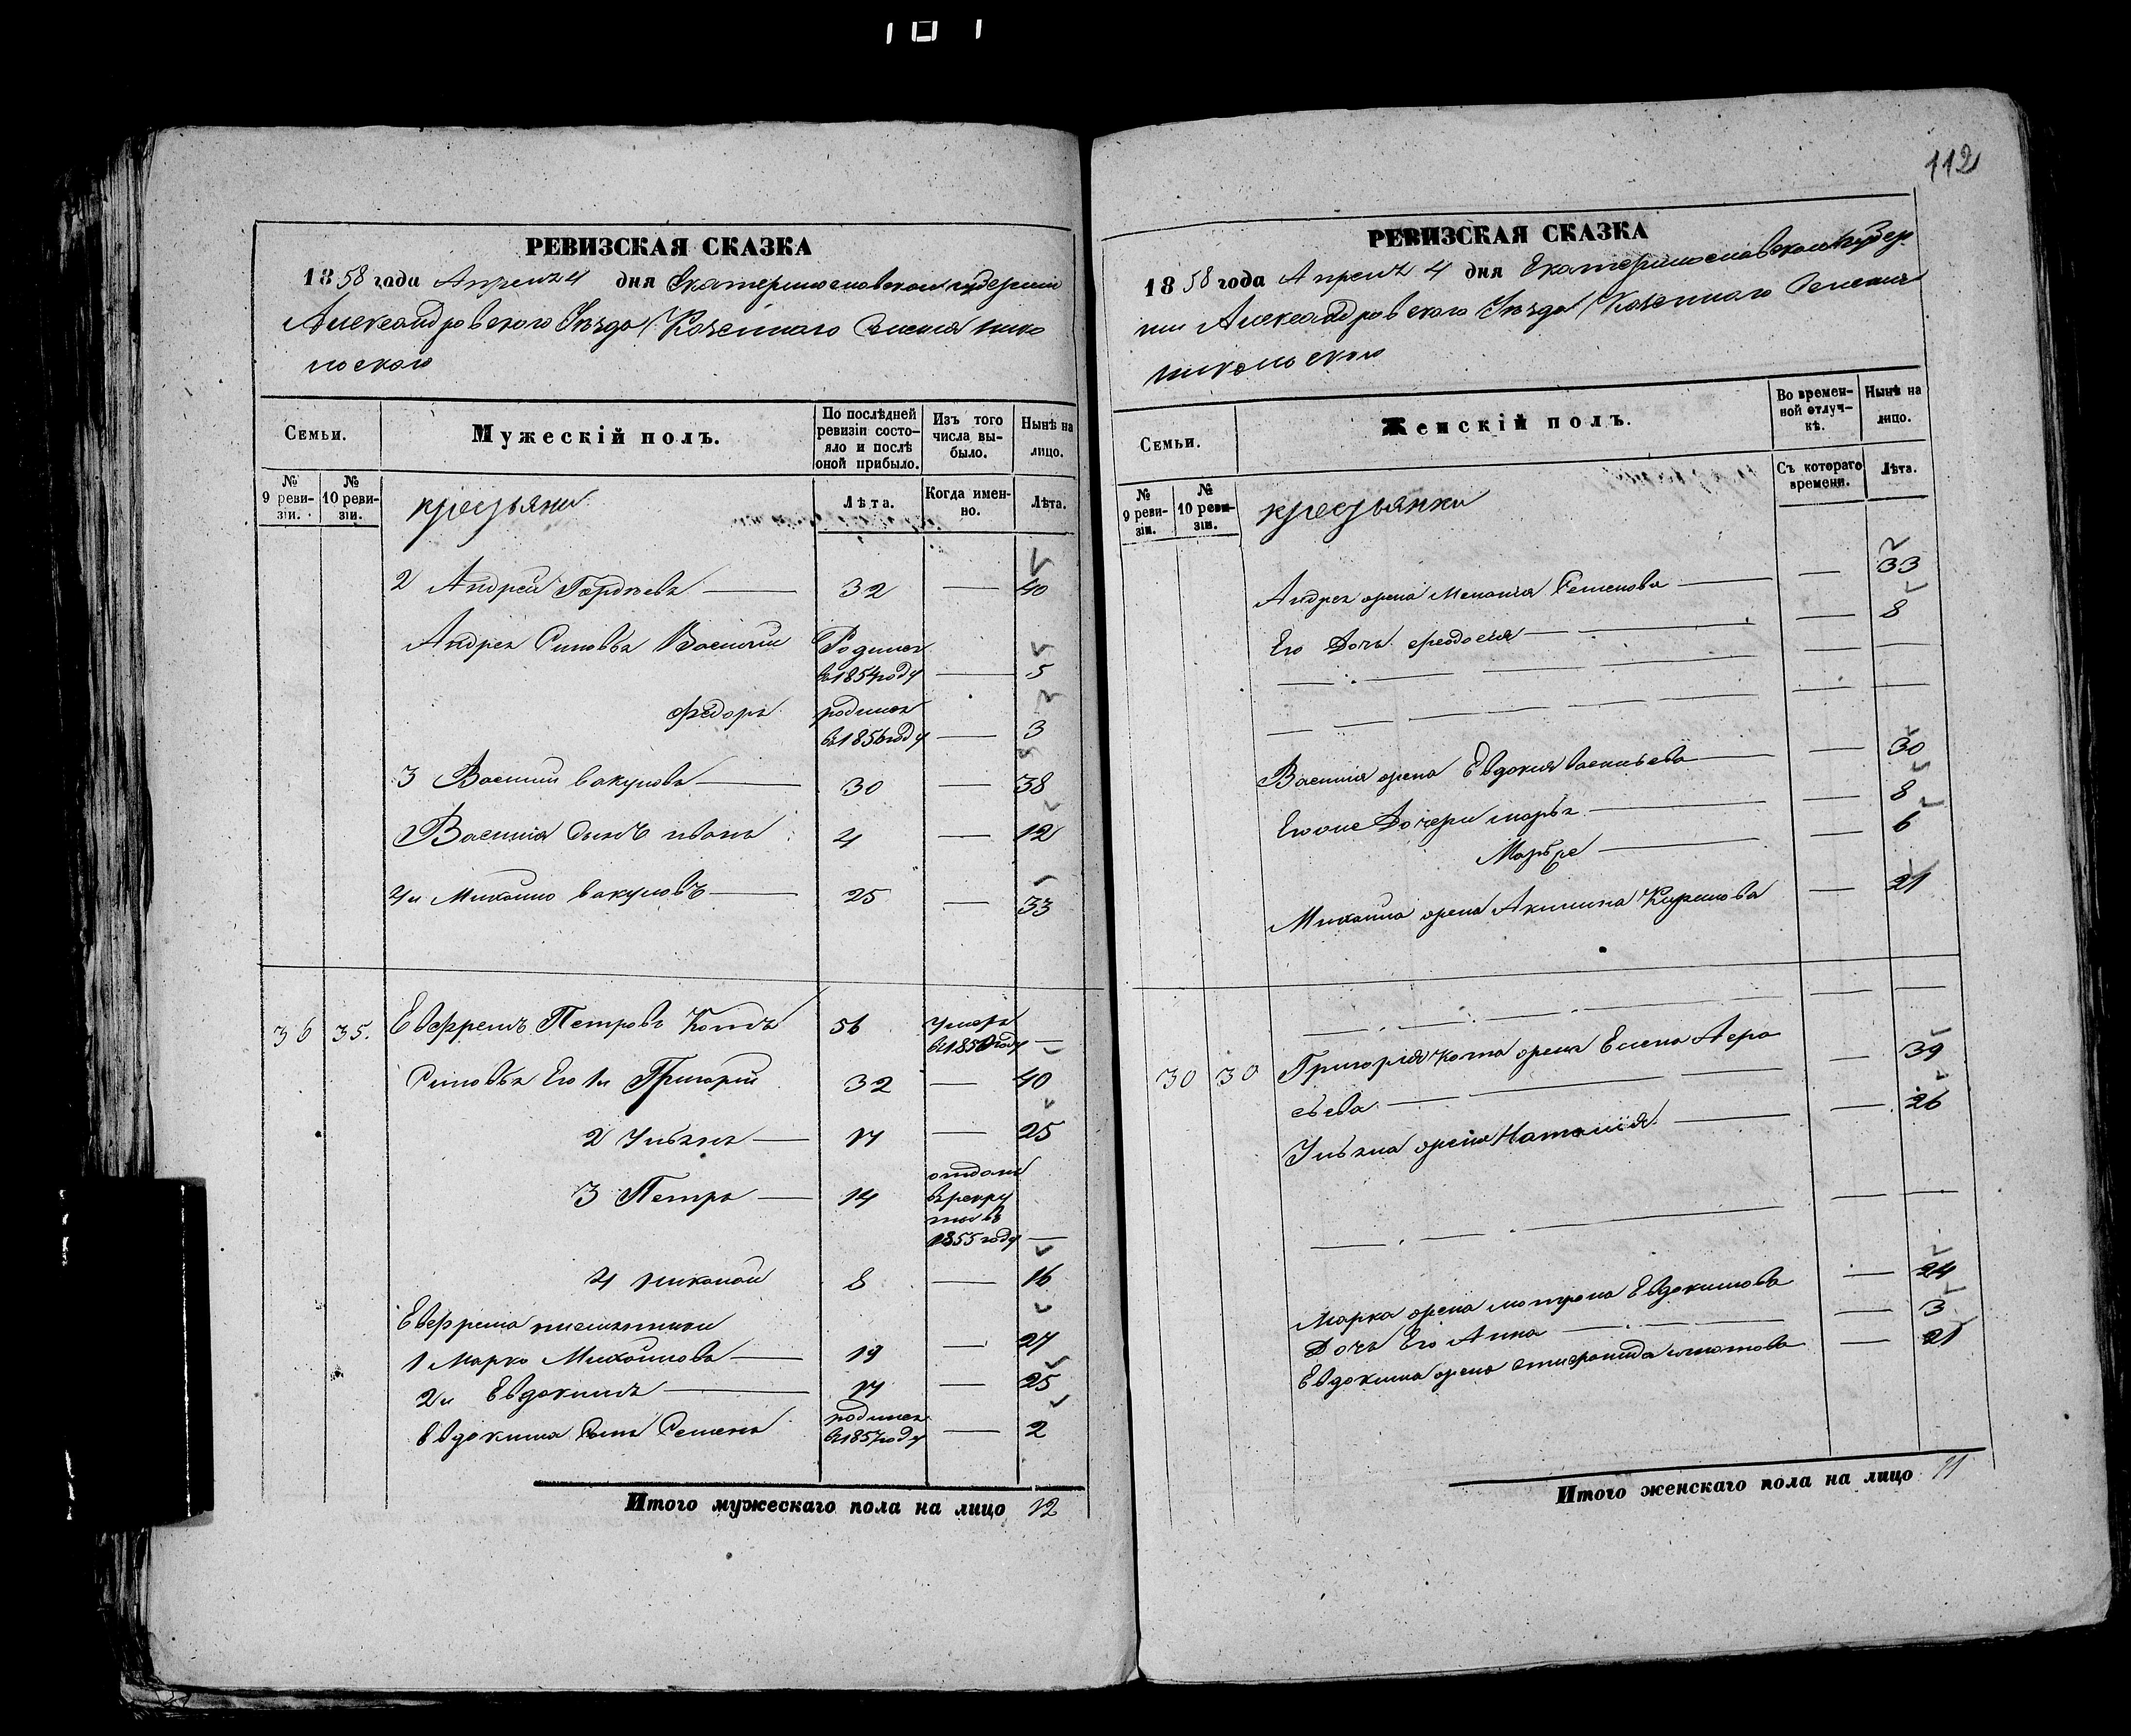 101
РЕВИЗСКАЯ СКАЗКА
1858 года Апреля 4 дня Екатеринославской губернии
Александровского Уезда Казенного Селения Нико
льского
Семьи.
Мужескій полъ.
По послѣдней ревизіи состояло и послѣ оной прибыло.
Изъ того числа выбыло.
Нынѣ на лицо.
№ 9 ревизіи.
№ 10 ревизіи.
крестьяни
Лѣта.
Когда именно.
Лѣта.
2 Андрей Гордѣевъ — 32 — 40
Андрея Синовья Василий Родился
в 1854 году — 5
Федоръ родился
в 1856 году — 3
3 Василий Вакуловъ — 30 — 38
Василия Сынъ Иванъ 4 — 12
4й Михаило Вакуловъ — 25 — 33
36 35. Евфремъ Петровъ Котъ 56 умеръ
в 1850 году —
Синовья Его 1й Григорий 32 — 40
2 Ульянъ — 17 — 25
3 Петръ — 14 отданъ
в рекру
ты въ
1855 году —
4 Николай 8 — 16
Евфрема племянники
1 Марко Михайлова — 19 — 27
2й Евдокимъ — 17 — 25
Евдокима Сынъ Семенъ родился
в 1857 году — 2
Итого мужескаго пола на лицо 12
112
РЕВИЗСКАЯ СКАЗКА
1858 года Апреля 4 дня Екатеринославской Губер
нии Александровского Уезда Казенного Селения
Никольского
Семьи.
Женскій полъ.
Во временной отлучкѣ.
Нынѣ на лицо.
№ 9 ревизіи.
№ 10 ревизіи.
крестьянки
Съ котораго времени.
Лѣта.
Андрея жена Мелания Семенова — — 33
Его Дочь Феодосия — — 8
Василия жена Евдокия Васильева — — 30
Его же Дочери Марья — — 8
Мавра — — 6
Михаила жена Акилина Кирилова — 21
30 30 Григория Кота жена Елена Гера
сьева — — 39
Ульяна жена Наталия — — 26
Марка жена Матрона Евдокимова — 24
Дочь Его Анна — — 3
Евдокима жена — 21
Итого женскаго пола на лицо 11